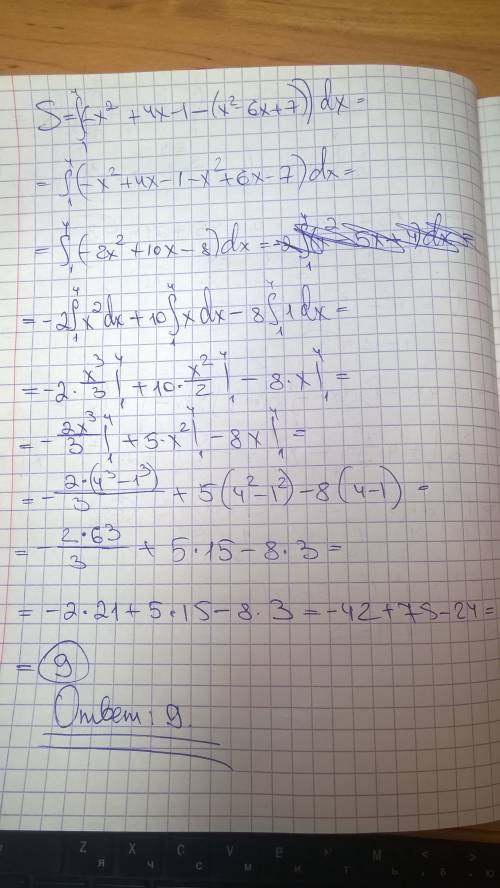 S = ∫₁⁴(-x² + 4x - 1 - (x² - 6x + 7))dx =
= ∫₁⁴(-x² + 4x - 1 - x² + 6x - 7)dx =
= ∫₁⁴(-2x² + 10x - 8)dx =
= -2∫₁⁴x²dx + 10∫₁⁴x dx - 8∫₁⁴1dx =
= -2·x³/3|₁⁴ + 10·x²/2|₁⁴ - 8·x|₁⁴ =
= -2x³/3|₁⁴ + 5·x²|₁⁴ - 8x|₁⁴ =
= -2·(4³-1³)/3 + 5(4²-1²) - 8(4-1) =
= -2·63/3 + 5·15 - 8·3 =
= -2·21 + 5·15 - 8·3 = -42 + 75 - 24 =
= 9
Ответ: 9.
Z X C V B N M < >
Я Ч С М И Т Ь Б